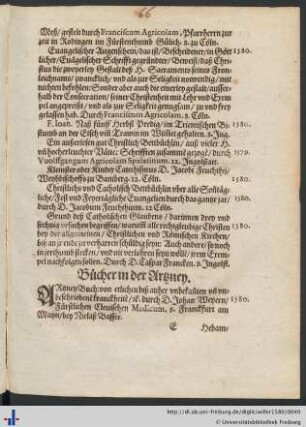 66
Meß/ gestelt durch Franciscum Agricolam, Pfarrherrn zur
zeit in Rodingen im Fürstenthumb Gülich. 8. zu Cöln.
Euangelischer Augenschein/ das ist/ Bescheidener/ in Göt- 1580.
licher/ Euãgelischer Schrifft gegründter/ Beweiß/ daß Chri-
stus die zweyerley Gestalt deß H. Sacraments seinen Frön-
lichnams/ zwancklich/ vnd als zur Seligkeit notwendig/ mit
nichten befohlen: Sonder aber auch die einerley gestalt/ ausser-
halb der Consecration/ seiner Christenheit mit Lehr vnd Exem-
pel angepreist/ vnd als zur Seligkeit genugsam/ zu vnd frey
gelassen hab. Durch Franciscum Agricolam. 8. Cöln.
F. Ioan. Naß fünff Herbst Predig/ im Trientischen Bi- 1580.
stumb an der Etsch vñ Tramin im Wüßet gehalten. 8. Ing.
Ein außerlesen gut Christlich Betbüchlin/ auß vieler H.
vñ hocherleuchter Männer Schrifften zusamẽ gezogẽ/ durch 1579.
Vuolffgangum Agricolam Spalatinum. 12. Ingolstatt.
Kleinster oder Kinder Catechismus D. Jacobi Feuchthij/
Weyhbischoffs zu Bamberg. 12. Cöln. 1580.
Christlichs vnd Catholisch Bettbüchlin vber alle Sontäg-
liche/ Fest vnd Feyertägliche Euangelien durch das gantze jar/ 1580.
durch D. Jacobum Feuchtium. 12 Cöln.
Grund deß Catholischen Glaubens/ darinnen drey vnd
sechtzig vrsachen begriffen/ warumb alle rechtgleubige Christen 1580.
bey der allgemeinen/ Christlichen vnd Römischen Kirchen/
biß an jr ende zu verharren schüldig seyn: Auch andere/ so noch
in irrthumb stecken/ vnd nit verlohren seyn wöllẽ/ jrem Exem-
pel nachzufolgen sollen. Durch D. Caspar Francken. 8. Ingolst.
Bücher in der Artzney.
ARtzney Buch/ von etlichen biß anher vnbekañten vñ vn-
beschriebenẽ kranckheitẽ/ ꝛc. durch D. Johan Weyern/ 1580.
Fürstlichen Cleuischen Medicum. 8. Franckfurt am
Mayn/ bey Niclaß Bassee.
E Hebam-
http://digi.ub.uni-freiburg.de/diglit/willer1580/0040
© Universitätsbibliothek Freiburg